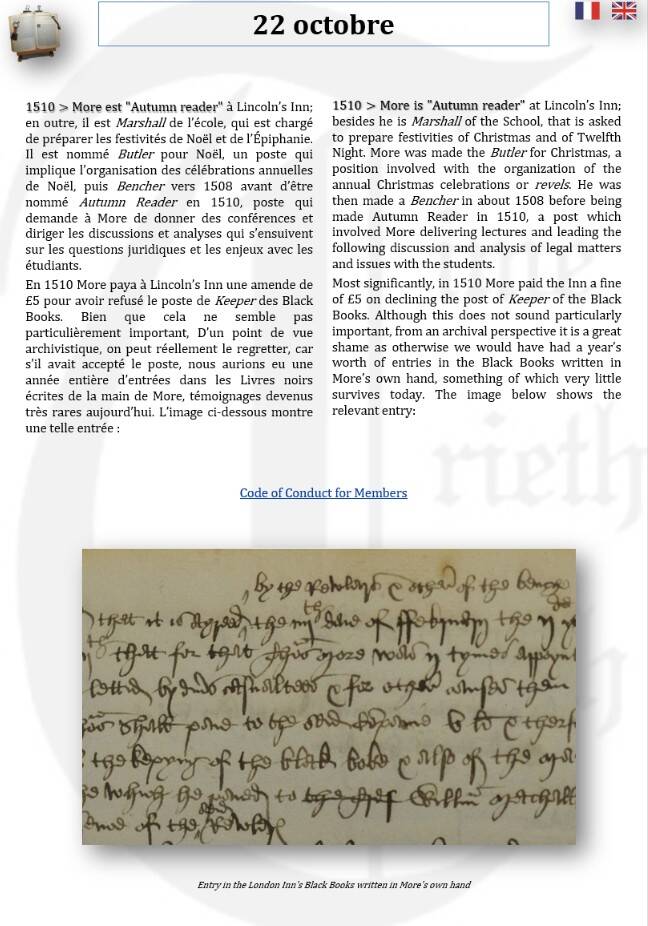 22 octobre
1510 > More est "Autumn reader" à Lincoln's Inn;
en outre, il est Marshall de l'école, qui est chargé
de préparer les festivités de Noël et de l'Épiphanie.
Il est nommé Butler pour Noël, un poste qui
implique l'organisation des célébrations annuelles
de Noël, puis Bencher vers 1508 avant d'être
nommé Autumn Reader en 1510, poste qui
demande à More de donner des conférences et
diriger les discussions et analyses qui s'ensuivent
sur les questions juridiques et les enjeux avec les
étudiants.
En 1510 More paya à Lincoln's Inn une amende de
£5 pour avoir refusé le poste de Keeper des Black
Books. Bien que cela ne semble pas
particulièrement important, D'un point de vue
archivistique, on peut réellement le regretter, car
s'il avait accepté le poste, nous aurions eu une
année entière d'entrées dans les Livres noirs
écrites de la main de More, témoignages devenus
très rares aujourd'hui. L'image ci-dessous montre
une telle entrée :
1510 > More is "Autumn reader" at Lincoln's Inn;
besides he is Marshall of the School, that is asked
to prepare festivities of Christmas and of Twelfth
Night. More was made the Butler for Christmas, a
position involved with the organization of the
annual Christmas celebrations or revels. He was
then made a Bencher in about 1508 before being
made Autumn Reader in 1510, a post which
involved More delivering lectures and leading the
following discussion and analysis of legal matters
and issues with the students.
Most significantly, in 1510 More paid the Inn a fine
of £5 on declining the post of Keeper of the Black
Books. Although this does not sound particularly
important, from an archival perspective it is a great
shame as otherwise we would have had a year's
worth of entries in the Black Books written in
More's own hand, something of which very little
survives today. The image below shows the
relevant entry:
Code of Conduct for Members
by the of the
that it is the daie of the
that for that more was
for other causes
shall to the
the of the blak boke also of the
which he to the
of the
Entry in the London Inn's Black Books written in More's own hand